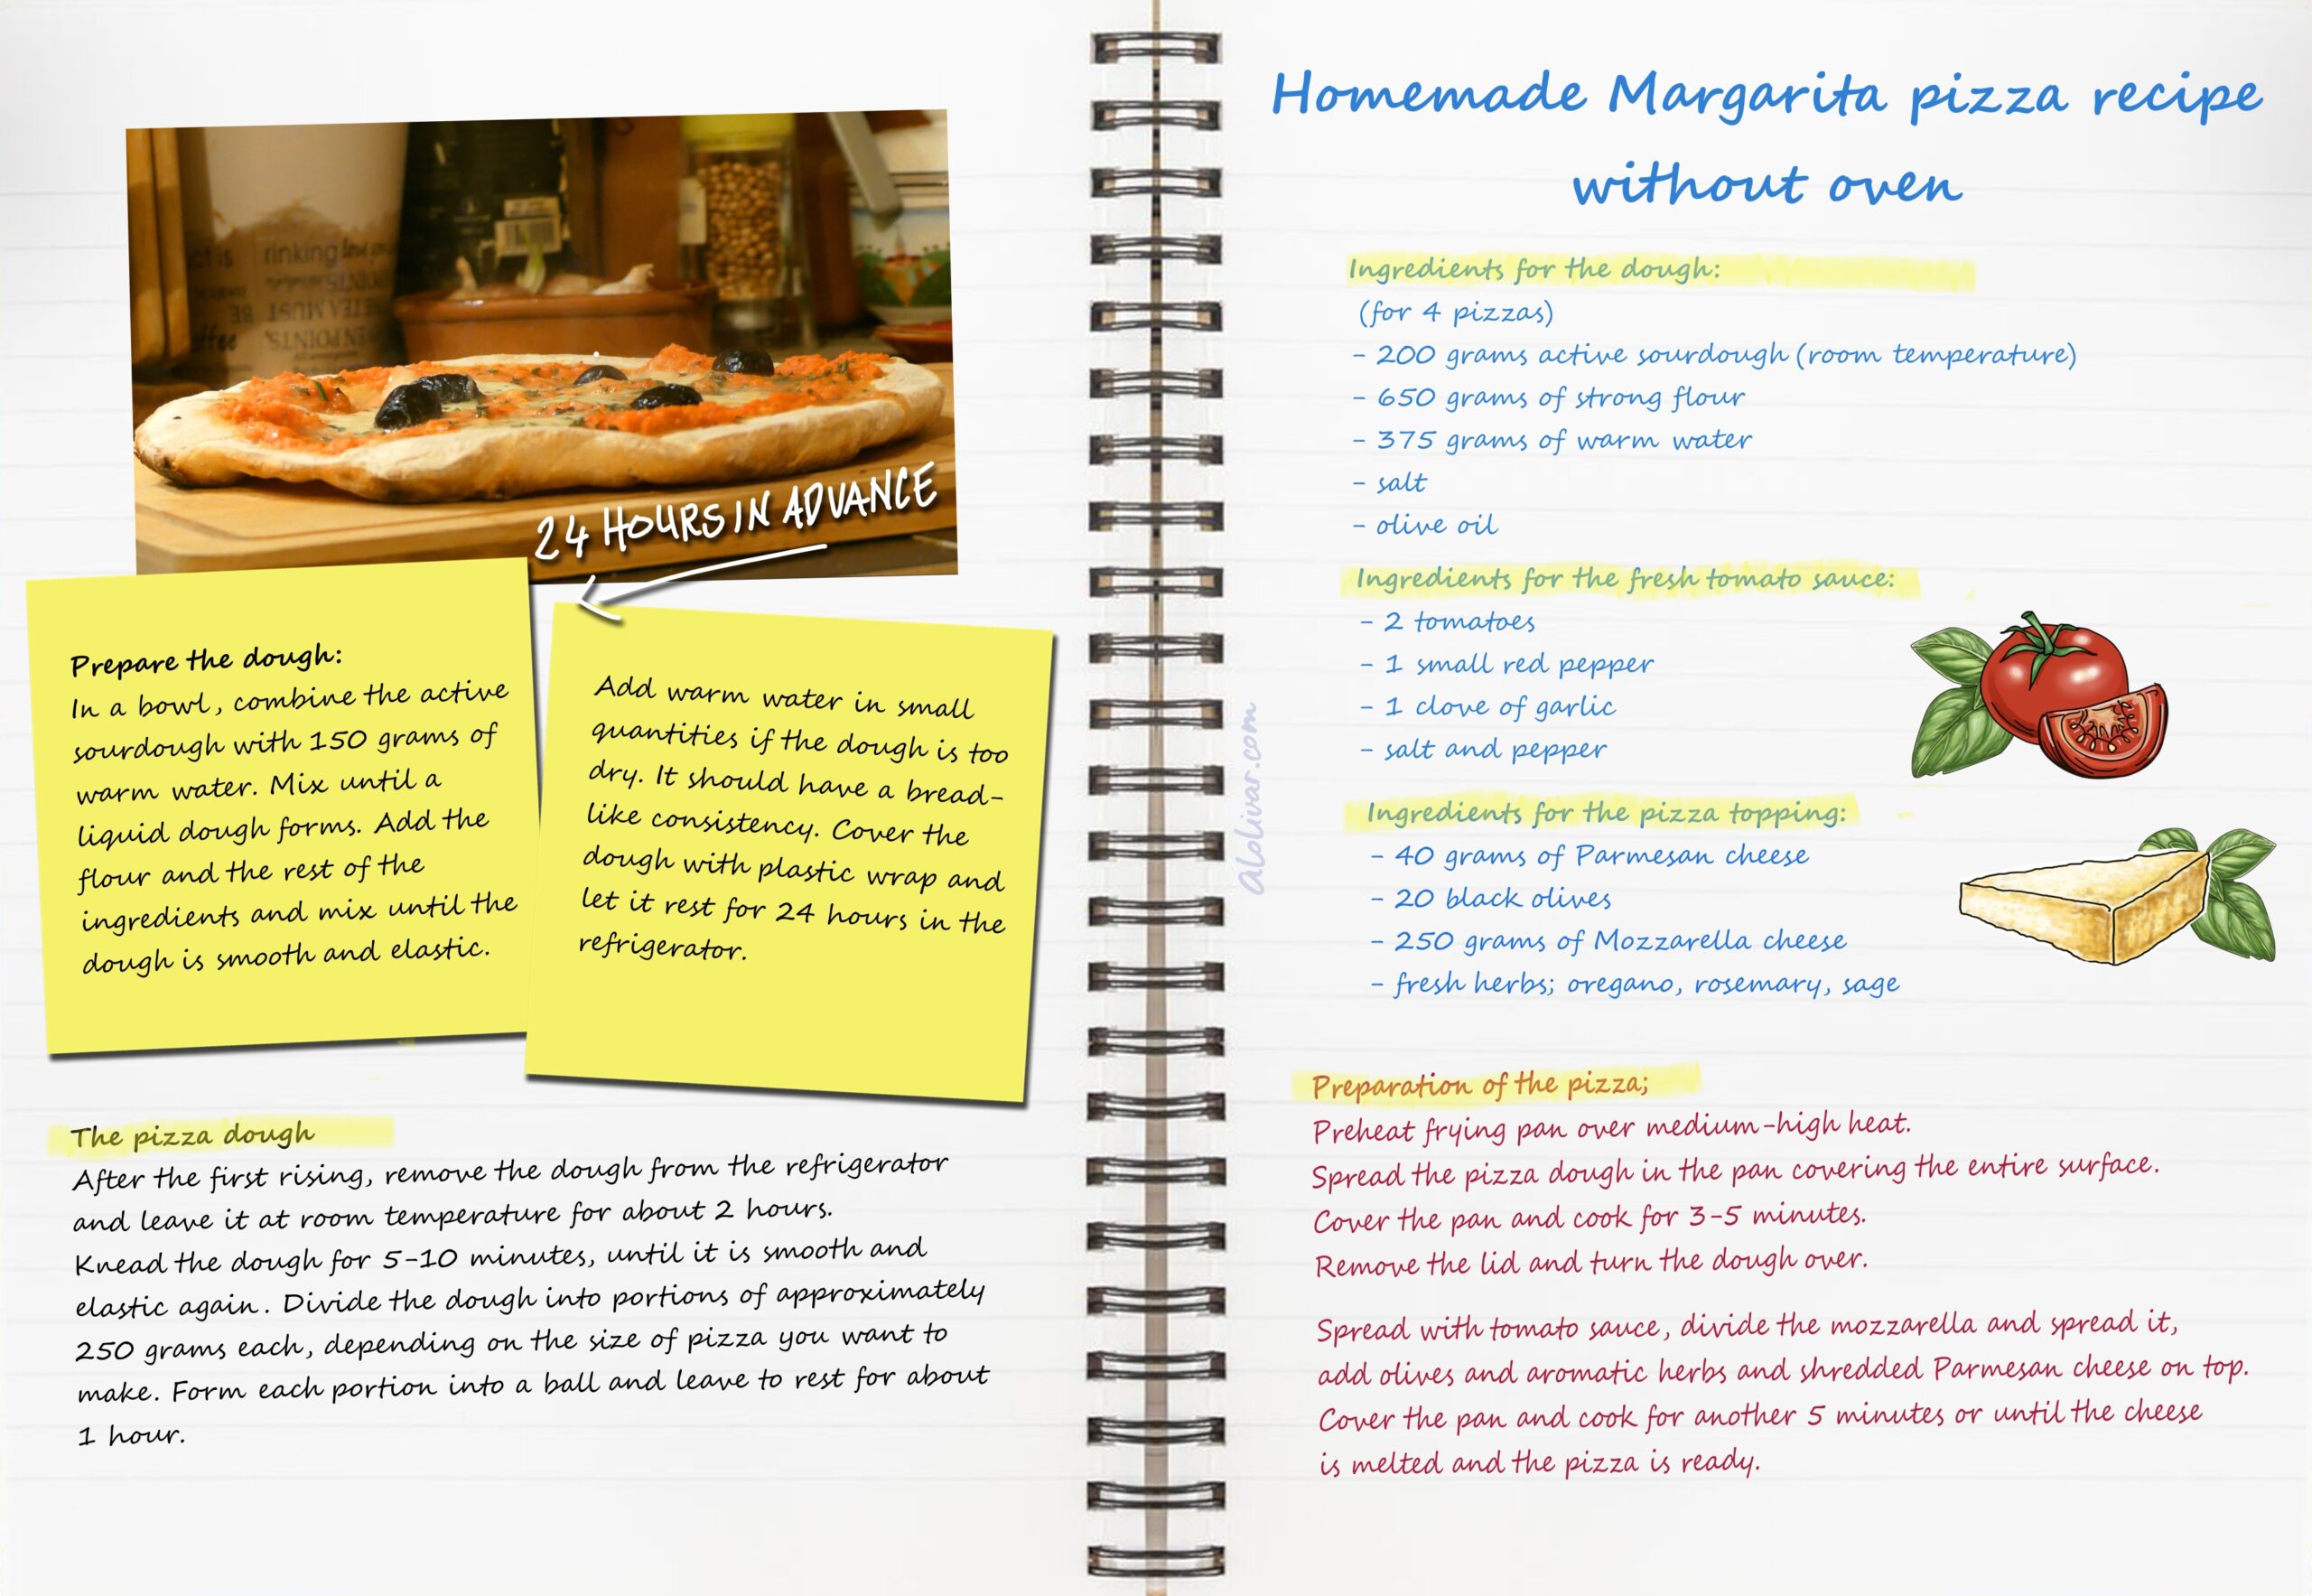 24 HOURS IN ADVANCE
Prepare the dough:
In a bowl, combine the active
sourdough with 150 grams of
warm water. Mix until a
liquid dough forms. Add the
flour and the rest of the
ingredients and mix until the
dough is smooth and elastic.
Add warm water in small
quantities if the dough is too
dry. It should have a bread-
like consistency. Cover the
dough with plastic wrap and
let it rest for 24 hours in the
refrigerator.
The pizza dough
After the first rising, remove the dough from the refrigerator
and leave it at room temperature for about 2 hours.
Knead the dough for 5-10 minutes, until it is smooth and
elastic again. Divide the dough into portions of approximately
250 grams each, depending on the size of pizza you want to
make. Form each portion into a ball and leave to rest for about
1 hour.
aLolivar.com
Homemade Margarita pizza recipe
without oven
Ingredients for the dough:
(for 4 pizzas)
- 200 grams active sourdough (room temperature)
- 650 grams of strong flour
- 375 grams of warm water
- salt
- olive oil
Ingredients for the fresh tomato sauce:
- 2 tomatoes
- 1 small red pepper
- 1 clove of garlic
- salt and pepper
Ingredients for the pizza topping:
- 40 grams of Parmesan cheese
- 20 black olives
- 250 grams of Mozzarella cheese
- fresh herbs; oregano, rosemary, sage
Preparation of the pizza;
Preheat frying pan over medium-high heat.
Spread the pizza dough in the pan covering the entire surface.
Cover the pan and cook for 3-5 minutes.
Remove the lid and turn the dough over.
Spread with tomato sauce, divide the mozzarella and spread it,
add olives and aromatic herbs and shredded Parmesan cheese on top.
Cover the pan and cook for another 5 minutes or until the cheese
is melted and the pizza is ready.